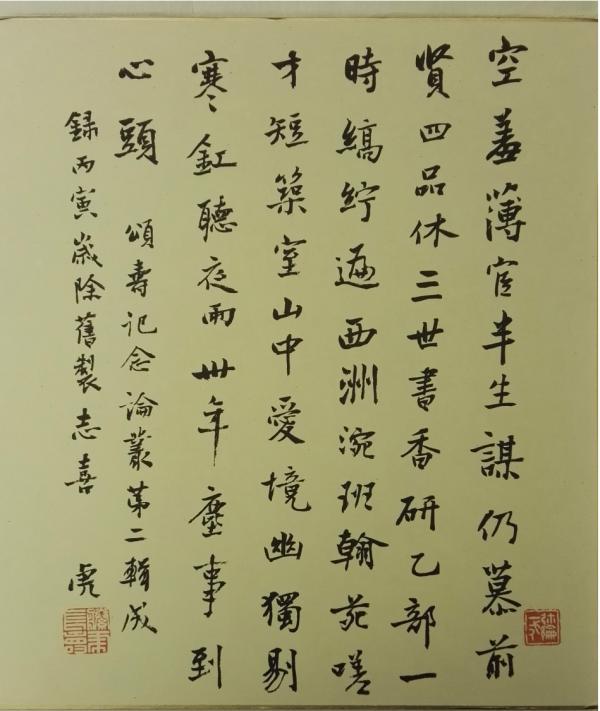 空羞薄宦半生謀仍慕前
賢四品休三世書香研乙部一
時縞紵遍西洲涴班翰苑嗟
才短築室山中愛境幽獨剔
寒釭聽夜雨卅年塵事到
心頭 頌壽記念論叢第二輯成
録丙寅歲除舊製志喜 虎